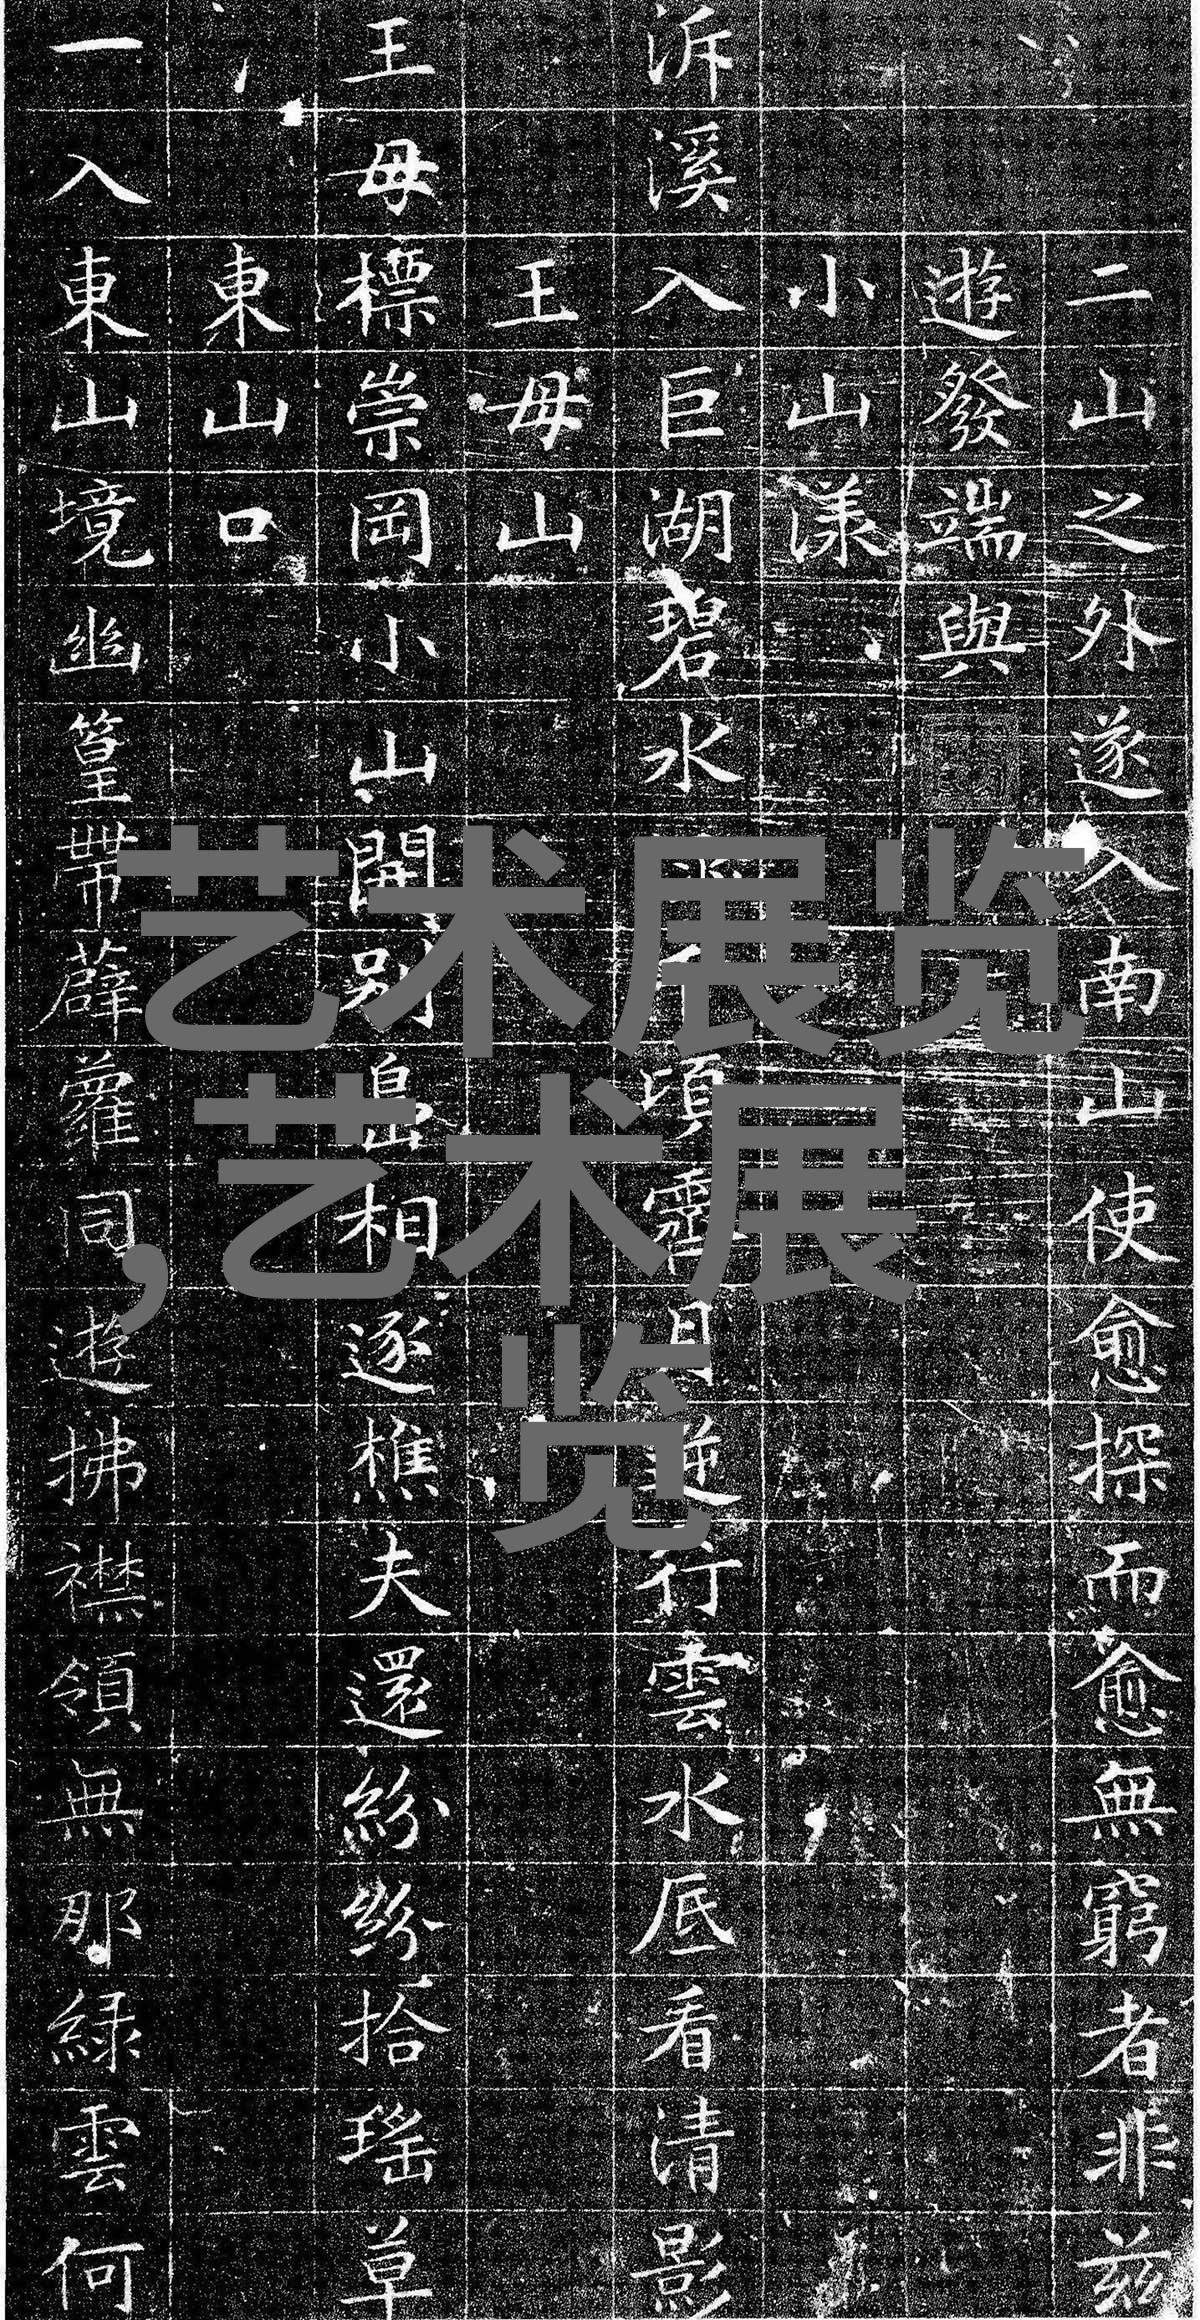 二山之外遂入南山使愈探而愈無窮者非兹
遊發端與
小山漾
泝溪入巨湖碧水
頃靈
行雲水底看清影
王母山
王母標崇岡小山開別島相逐樵夫還紛紛拾瑤草
東山口
一入東山境幽篁帶薜蘿同遊拂襟領無那綠雲何
艺术展览
,艺术展
览